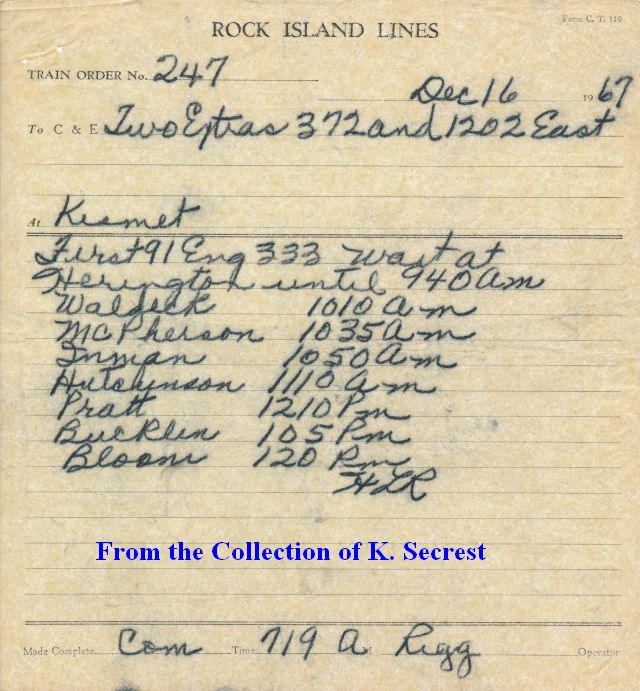 Form C. T. 110
ROCK ISLAND LINES
TRAIN ORDER No. 247
Dec 16 1967
To C & E Two Extras 372 and 1202 East
At Kismet
First 91 Eng 333 wait at
Herington until 940 am
Waldeck 1010 Am
McPherson 1035 Am
Inman 1050 Am
Hutchinson 1110 Am
Pratt 1210 Pm
Bucklin 105 Pm
Bloom 120 Pm
HLR
From the Collection of K. Secrest
Made Complete Com Time 719 A M Rigg Operator